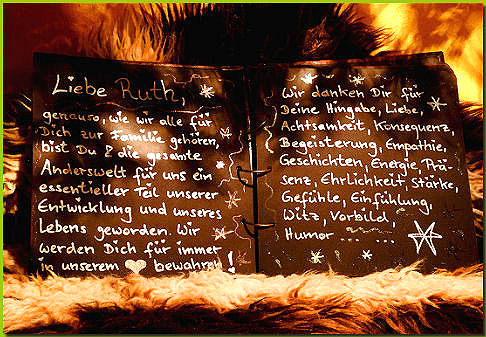 Liebe Ruth,
genauso, wie wir alle für
Dich zur Familie gehören,
bist Du & die gesamte
Anderswelt für uns ein
essentieller Teil unserer
Entwicklung und unseres
Lebens geworden. Wir
werden Dich für immer
in unserem ♡ bewahren!
Wir danken Dir für
Deine Hingabe, Liebe,
Achtsamkeit, Konsequenz,
Begeisterung, Empathie,
Geschichten, Energie, Prä-
senz, Ehrlichkeit, Stärke,
Gefühle, Einfühlung,
Witz, Vorbild,
Humor ... ... ...